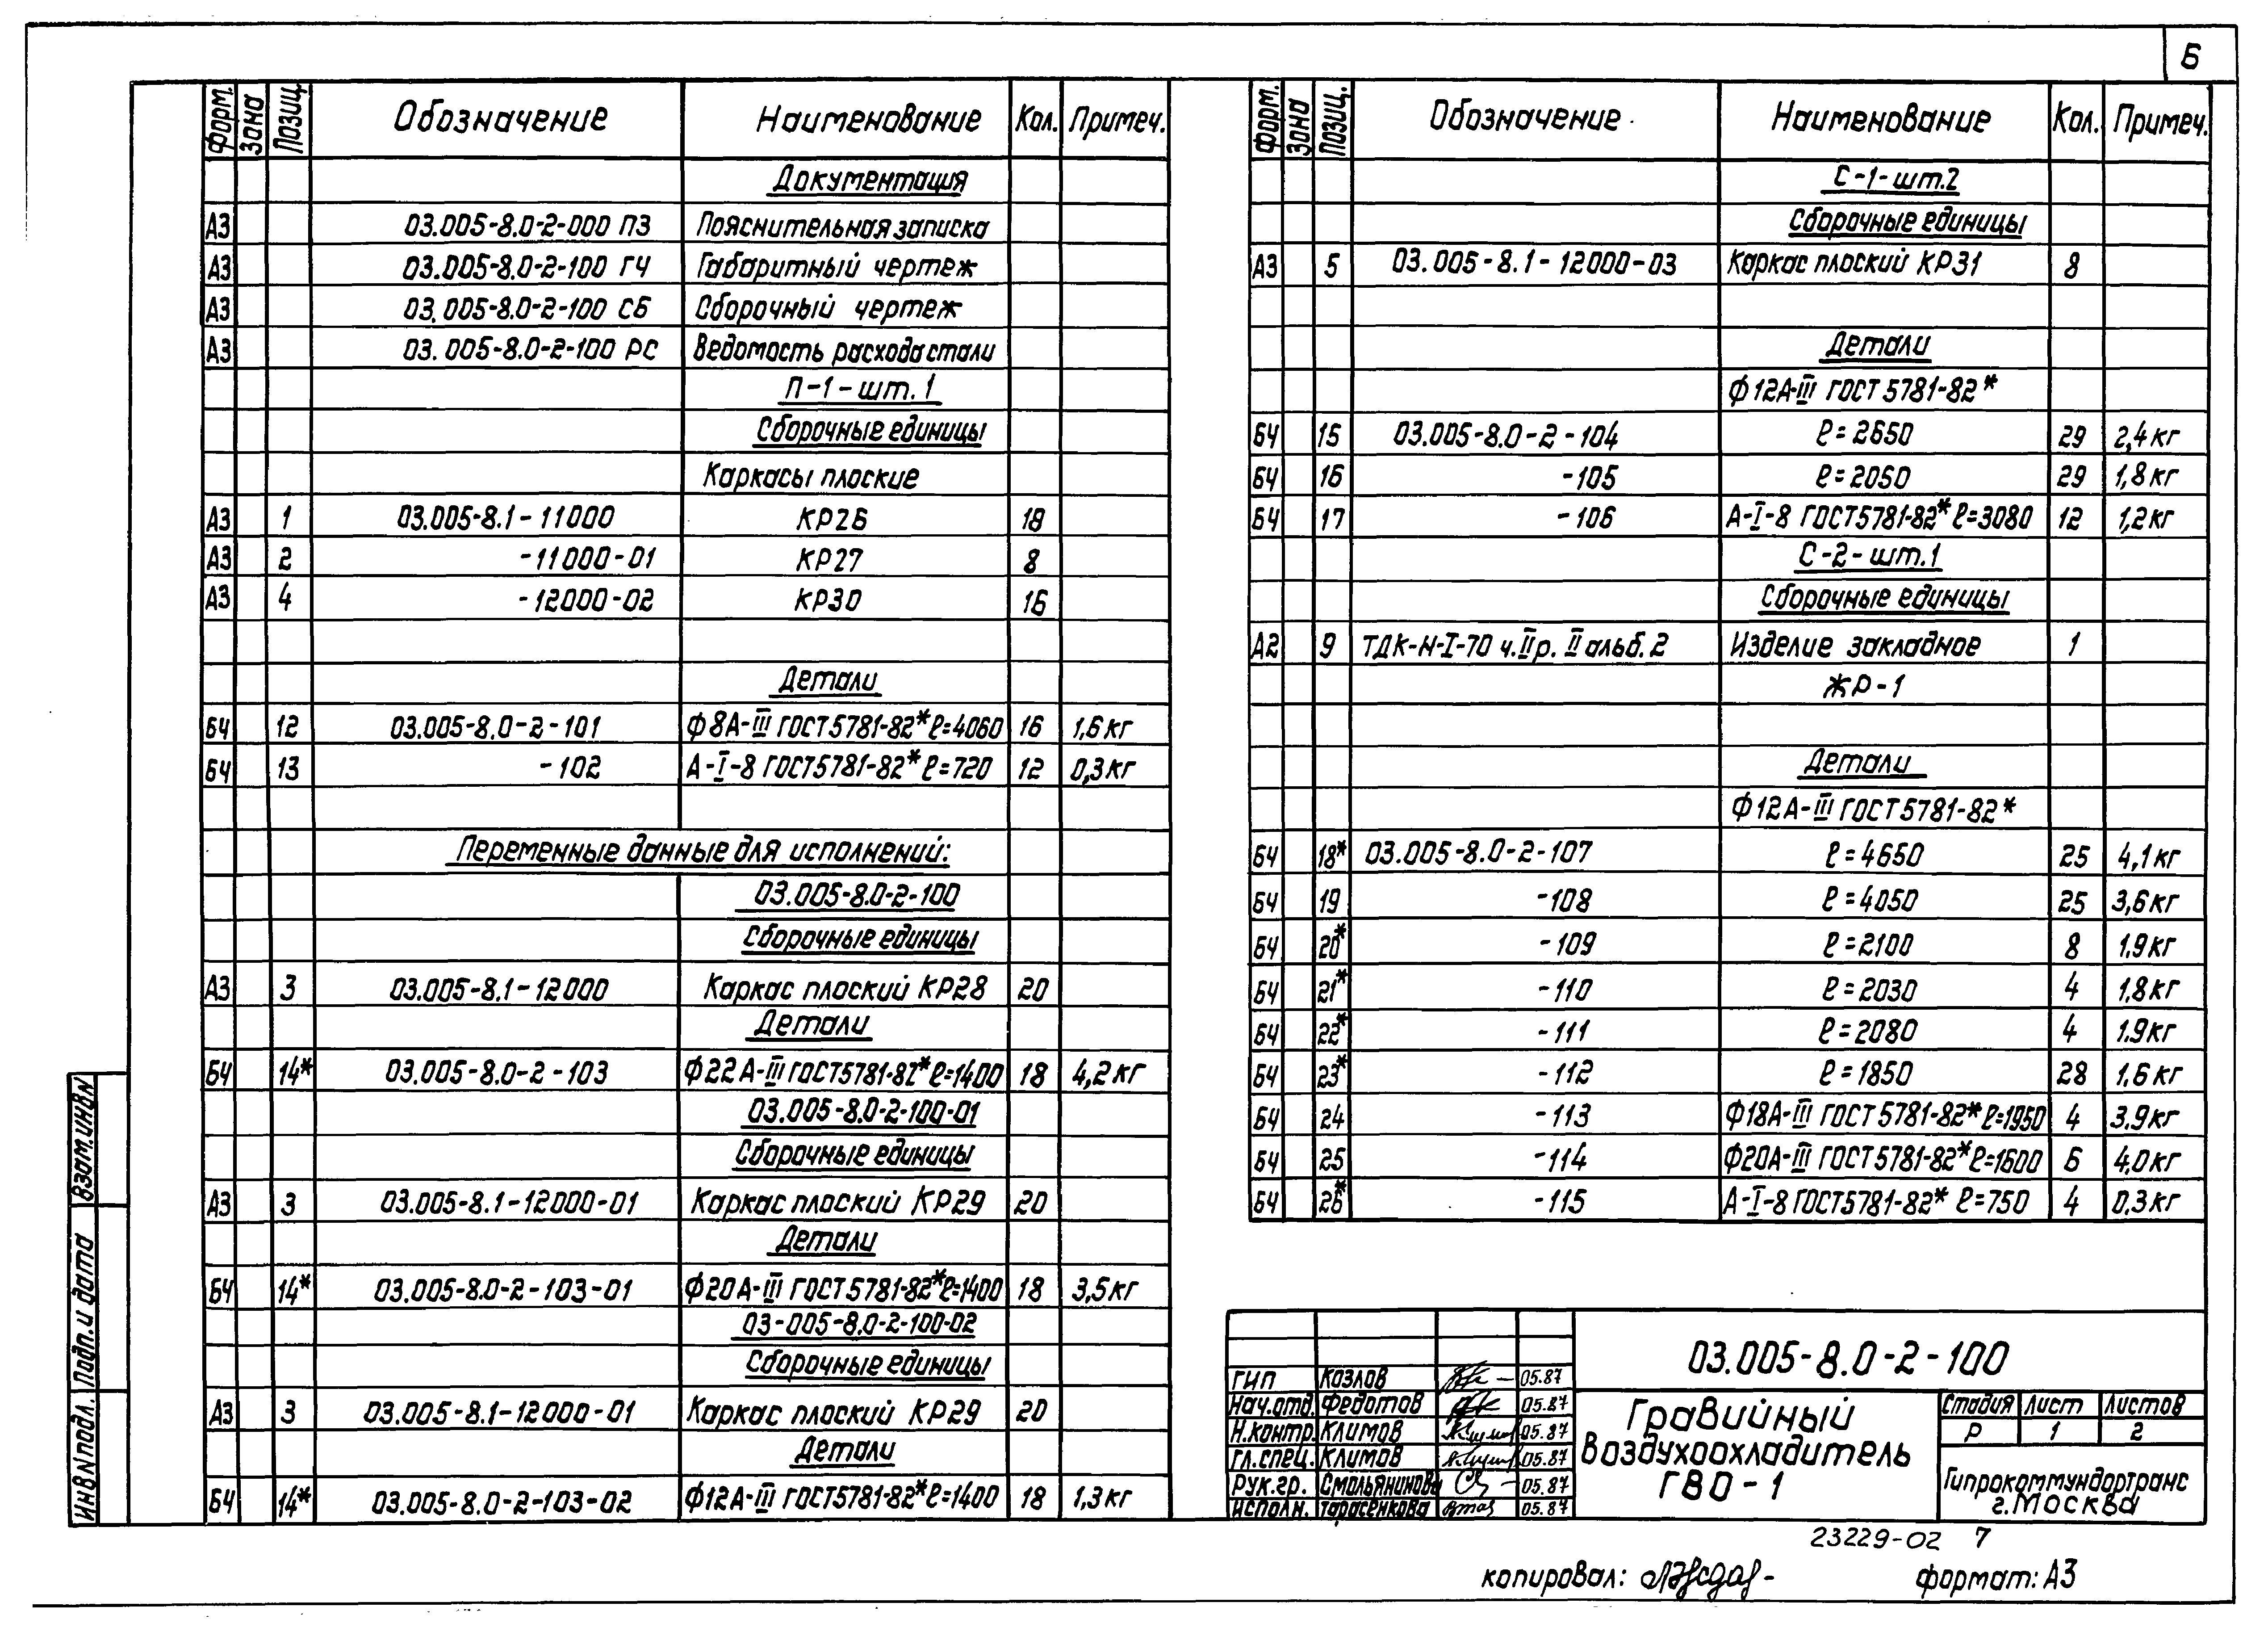 6
Форм. Зона Позиц. Обозначение Наименование Кол. Примеч.
Документация
А3 03.005-8.0-2-000 ПЗ Пояснительная записка
А3 03.005-8.0-2-100 ГЧ Габаритный чертеж
А3 03.005-8.0-2-100 СБ Сборочный чертеж
А3 03.005-8.0-2-100 РС Ведомость расхода стали
П-1-шт.1
Сборочные единицы
Каркасы плоские
А3 1 03.005-8.1-11000 КР26 18
А3 2 -11000-01 КР27 8
А3 4 -12000-02 КР30 16
Детали
БЧ 12 03.005-8.0-2-101 Ф8А-III ГОСТ 5781-82* ℓ=4060 16 1,6кг
БЧ 13 -102 А-I-8 ГОСТ 5781-82* ℓ=720 12 0,3кг
Переменные данные для исполнений:
03.005-8.0-2-100
Сборочные единицы
А3 3 03.005-8.1-12000 Каркас плоский КР28 20
Детали
БЧ 14* 03.005-8.0-2-103 Ф22А-III ГОСТ 5781-82* ℓ=1400 18 4,2кг
03.005-8.0-2-100-01
Сборочные единицы
А3 3 03.005-8.1-12000-01 Каркас плоский КР29 20
Детали
БЧ 14* 03.005-8.0-2-103-01 Ф20А-III ГОСТ 5781-82* ℓ=1400 18 3,5кг
03-005-8.0-2-100-02
Сборочные единицы
А3 3 03.005-8.1-12000-01 Каркас плоский КР29 20
Детали
БЧ 14* 03.005-8.0-2-103-02 Ф12А-III ГОСТ 5781-82* ℓ=1400 18 1,3кг
Форм. Зона Позиц. Обозначение Наименование Кол. Примеч.
С-1-шт.2
Сборочные единицы
А3 5 03.005-8.1-12000-03 Каркас плоский КР31 8
Детали
Ф12А-III ГОСТ 5781-82*
БЧ 15 03.005-8.0-2-104 ℓ=2650 29 2,4кг
БЧ 16 -105 ℓ=2050 29 1,8кг
БЧ 17 -106 А-I-8 ГОСТ 5781-82* ℓ=3080 12 1,2кг
С-2-шт.1
Сборочные единицы
А2 9 ТДК-Н-I-70 ч.II р. II альб.2 Изделие закладное 1
ЖР-1
Детали
Ф12А-III ГОСТ 5781-82*
БЧ 18* 03.005-8.0-2-107 ℓ=4650 25 4,1кг
БЧ 19 -108 ℓ=4050 25 3,6кг
БЧ 20* -109 ℓ=2100 8 1.9кг
БЧ 21* -110 ℓ=2030 4 1,8кг
БЧ 22* -111 ℓ=2080 4 1.9кг
БЧ 23* -112 ℓ=1850 28 1,6кг
БЧ 24 -113 Ф18А-III ГОСТ 5781-82* ℓ=1950 4 3.9кг
БЧ 25 -114 Ф20А-III ГОСТ 5781-82* ℓ=1600 6 4.0кг
БЧ 26* -115 А-I-8 ГОСТ 5781-82* ℓ=750 4 0.3кг
Взам.инв№
Подп.и дата
Инв№подл.
03.005-8.0-2-100
ГИП Козлов 05.87
Нач.отд. Федотов 05.87
Н.контр. Климов 05.87
Гл.спец. Климов 05.87
Рук.гр. Смольянинова 05.87
Исполн. Тарасенкова 05.87
Гравийный
воздухоохладитель
ГВО-1
Стадия Лист Листов
Р 1 2
Гипрокоммундортранс
г.Москва
23229-02 7
копировал:
формат: А3